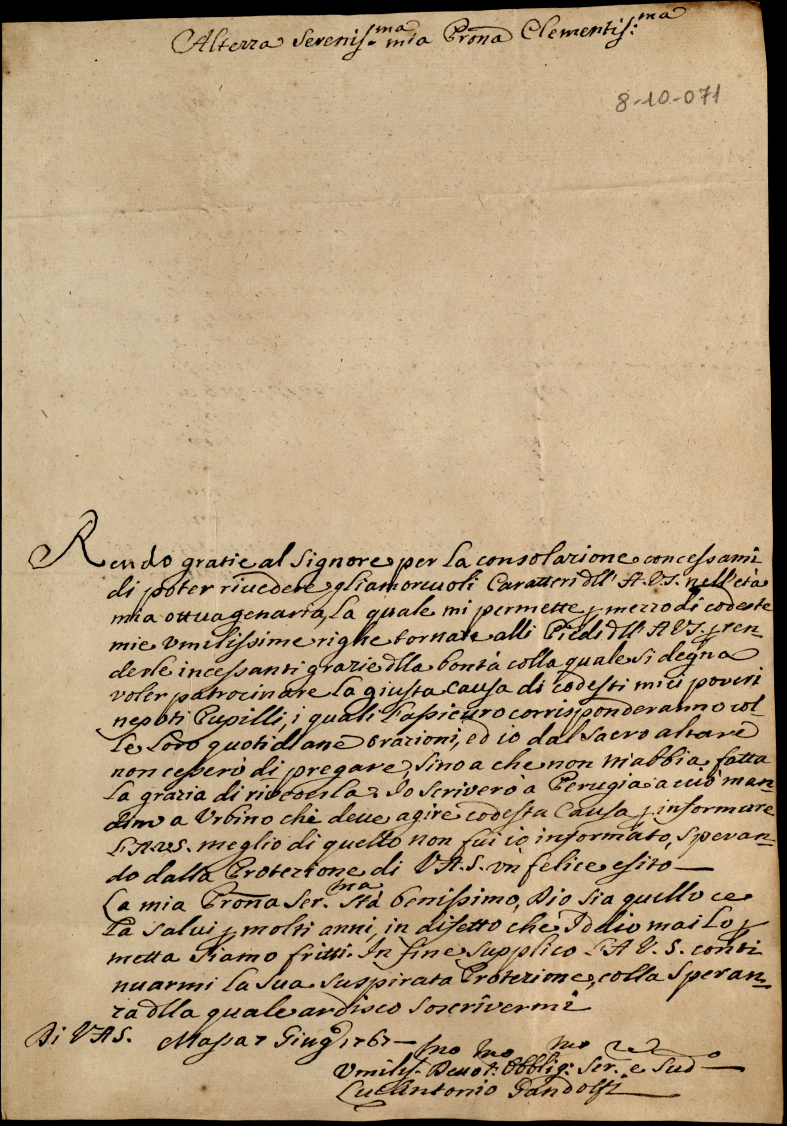 Altezza Serenis.ma mia Prona Clementis.ma
8-10-071
Rendo gratie al Signore per la consolazione concessami
di poter rivedere gliamorevoli Caratteri dll' A.V.S. nell'età
mia ottuagenaria, la quale mi permette p mezzo di codeste
mie vmilissime righe tornare alli Piedi dll' A V S. p ren-
derle incessanti grazie dlla bontà colla quale si degna
voler patrocinare la giusta causa di codesti miei poveri
nepoti Pupilli, i quali l'assicuro corrisponderanno col-
le loro quotidiane orazioni, ed io dal sacro altare
non cesserò di pregare, sino a che non m'abbia fatta
la grazia di rivederla. Io scriverò a Perugia acciò man-
dino a Vrbino chi deve agire codesta Causa p informare
l'A.V.S. meglio di quello non fui io informato, speran-
do dalla Protezione di V.A.S. vn felice esito
La mia Prona Ser.ma stà benissimo, Dio sia quello ce
la salvi p molti anni, in difetto che Iddio mai lo p
metta siamo fritti. In fine supplico l'A V. S. conti
nuarmi la sua suspirata Protezione, colla speran-
za dlla quale ardisco soscrivermi
Di V.A.S. Massa 7 Giugo 1767
Vmilis.mo Devot.mo Obblig.mo Ser.e e Sudo
Luc'Antonio Gandolfi